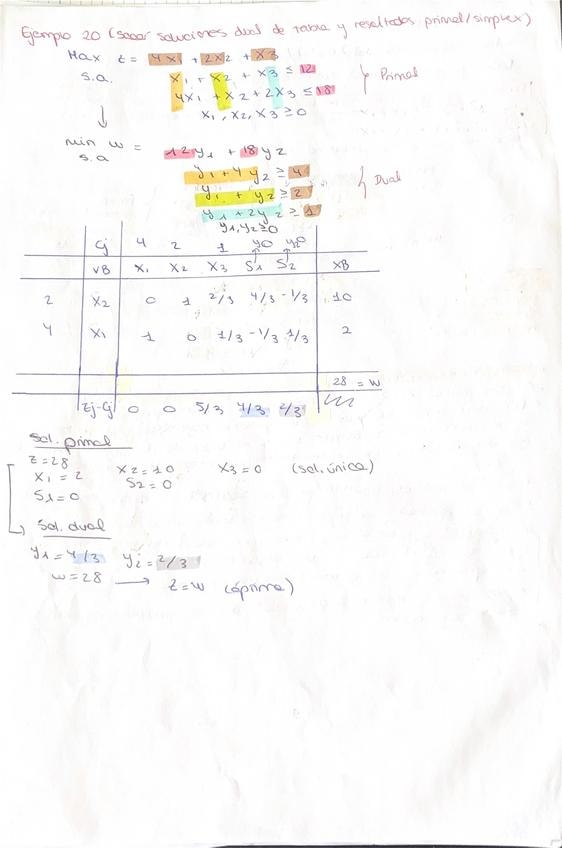 Ejemplo 20 (sacar soluciones dual de tabla y resultados primal/simplex)
Max z = 4x1 + 2x2 + x3
s.a. x1 + x2 + x3 ≤ 12
4x1 + x2 + 2x3 ≤ 18
Primal
x1, x2, x3 ≥ 0
min w = 12y1 + 18y2
s.a
y1 + 4y2 ≥ 4
y1 + y2 ≥ 2
Dual
y1 + 2y2 ≥ 1
y1, y2 ≥ 0
Cj 4 2 1 y0 y0
VB x1 x2 x3 S1 S2 XB
2 x2 0 1 2/3 4/3 -1/3 10
4 x1 1 0 1/3 -1/3 1/3 2
28 = w
Zj-Cj 0 0 5/3 4/3 2/3
Sol. primal
z=28
x1 = 2 x2 = 10 x3 = 0 (sol. única)
S1=0 S2=0
Sol. dual
y1 = 4/3 y2 = 2/3
w=28 → z=w (óptima)